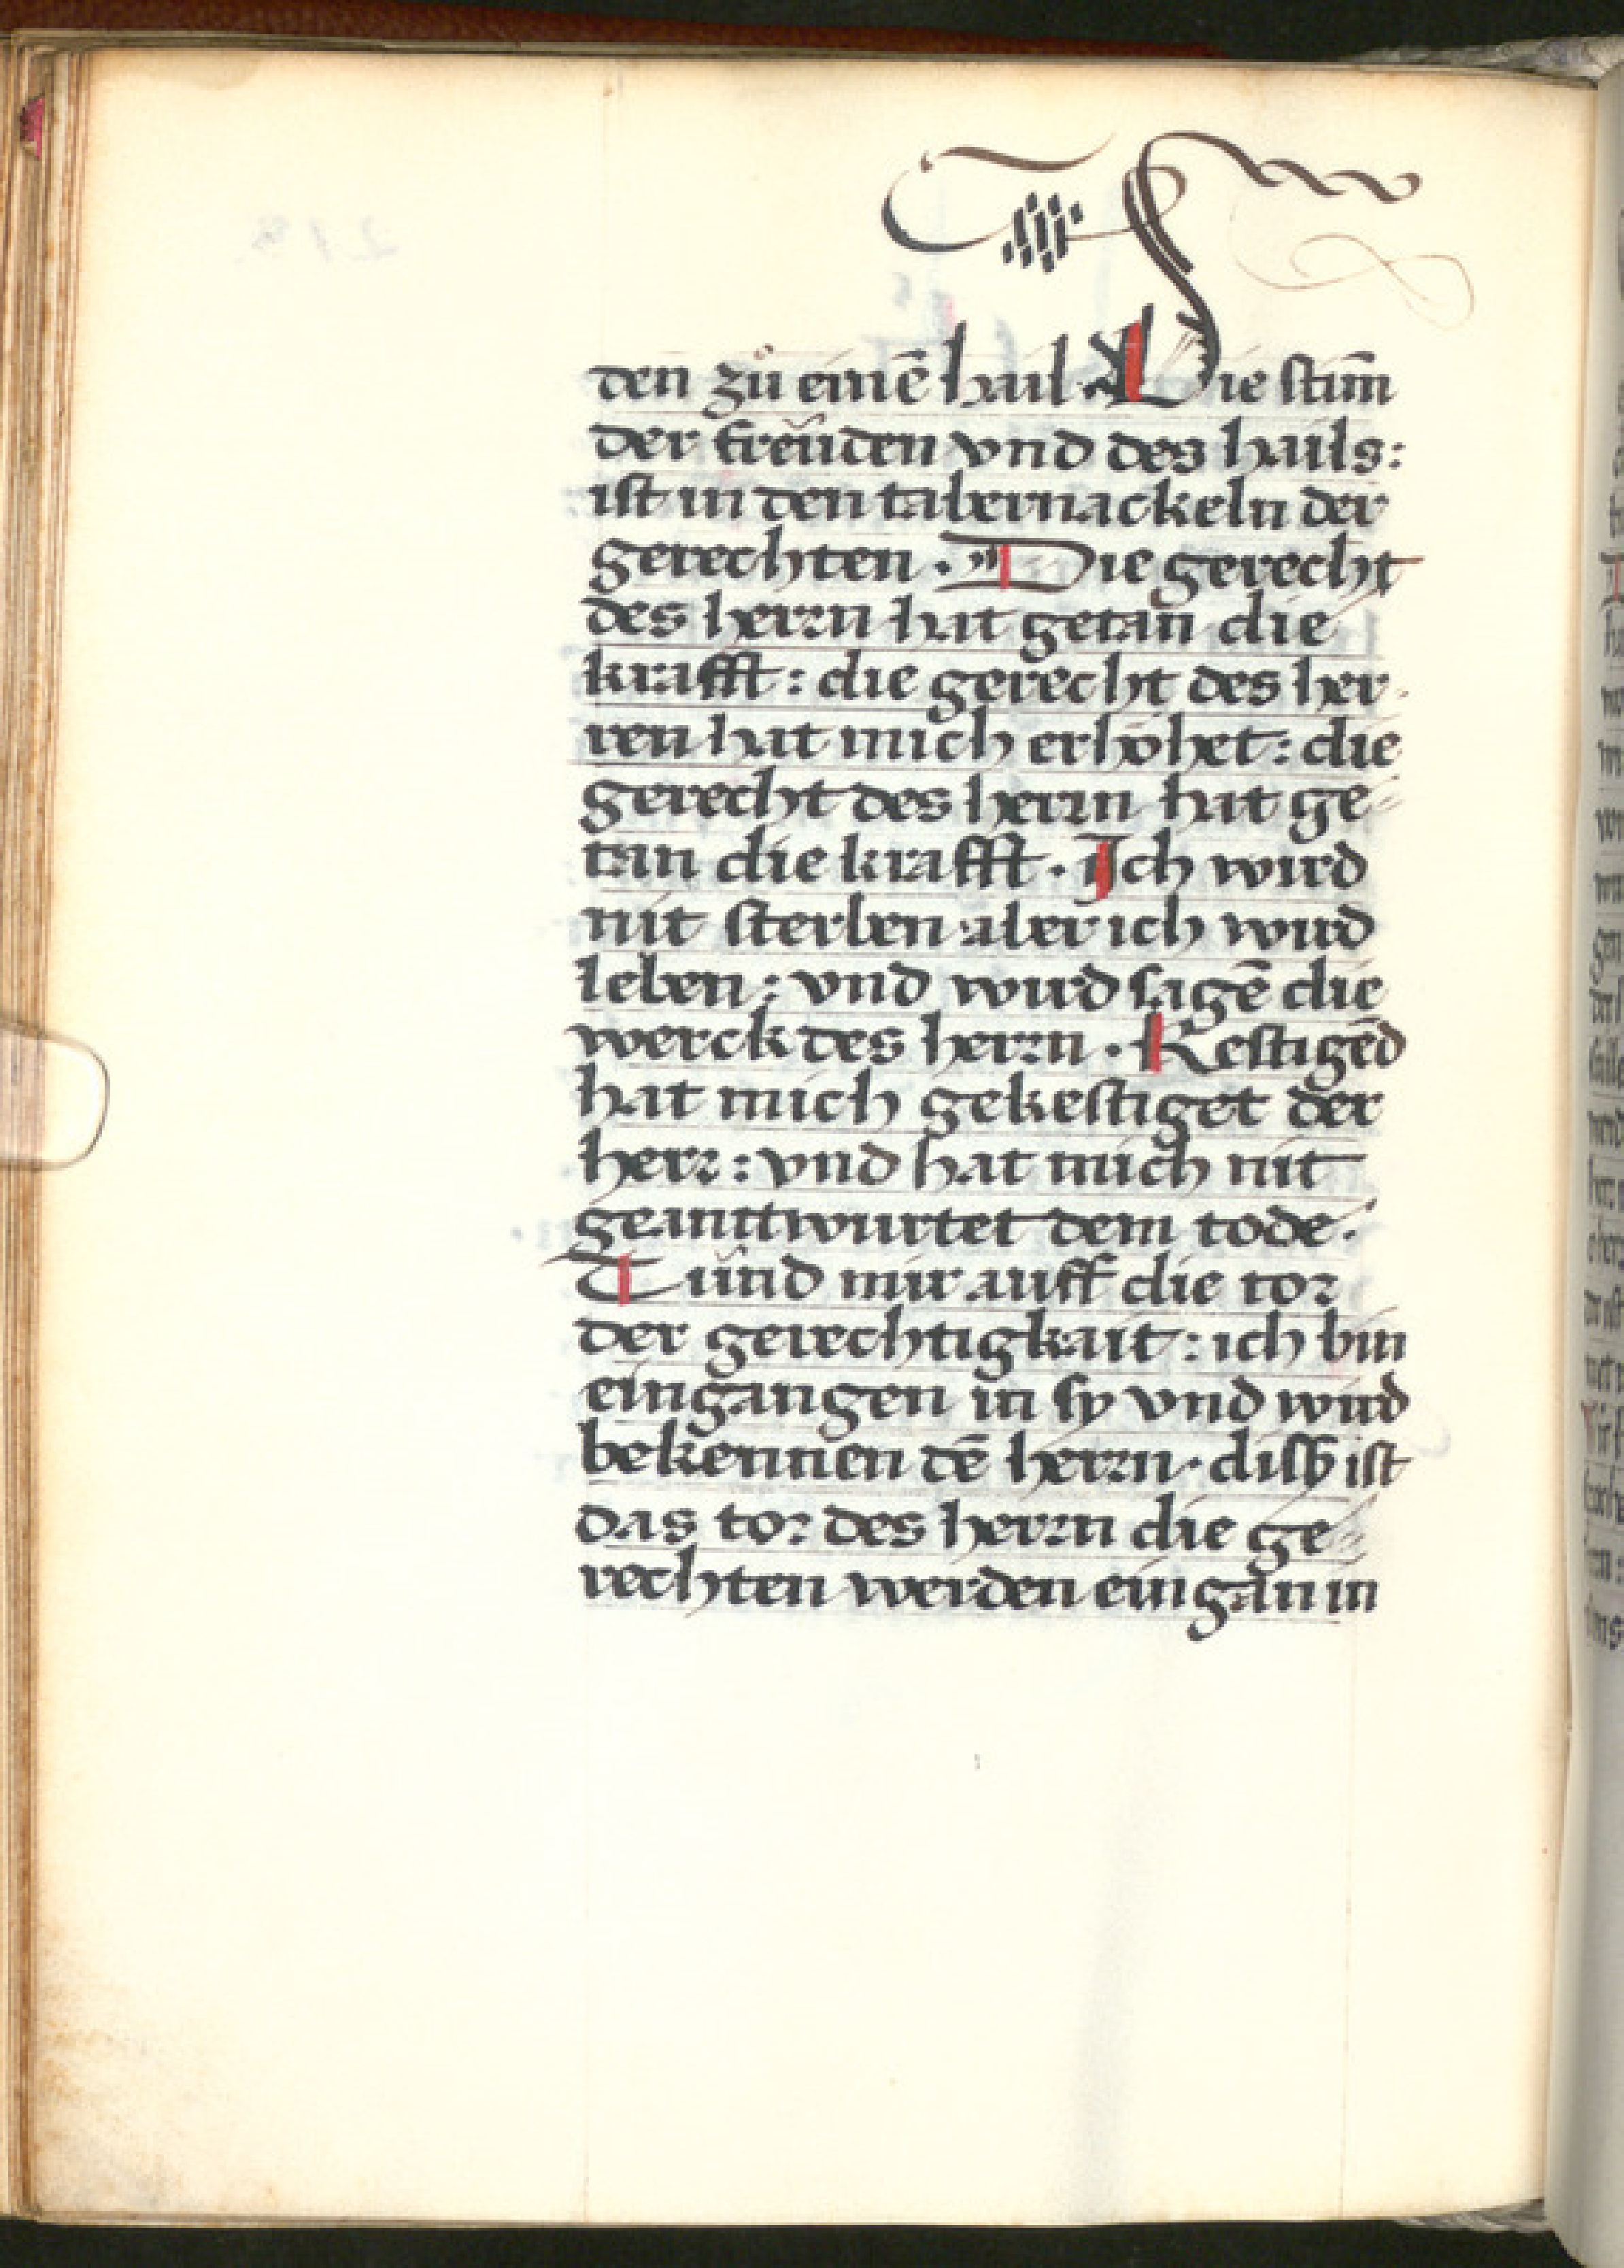 den zů einē hail · Die stim̄
der freüden vnd des hails:
ist in den tabernackeln der
gerechten · Die gerecht
des herrn hat getan die
krafft: die gerecht des her-
ren hat mich erhöhet: die
gerecht des herrn hat ge-
tan die krafft · Ich wird
nit sterben aber ich wird
leben: vnd wird sagē die
werck des herrn · Kestigēd
hat mich gekestiget der
herr: vnd hat mich nit
geanttwurtet dem tode·
Tůnd mir auff die tor
der gerechtigkait: ich bin
eingangen in sy vnd wird
bekennen dē herrn· diß ist
das tor des herrn die ge-
rechten werden eingan in